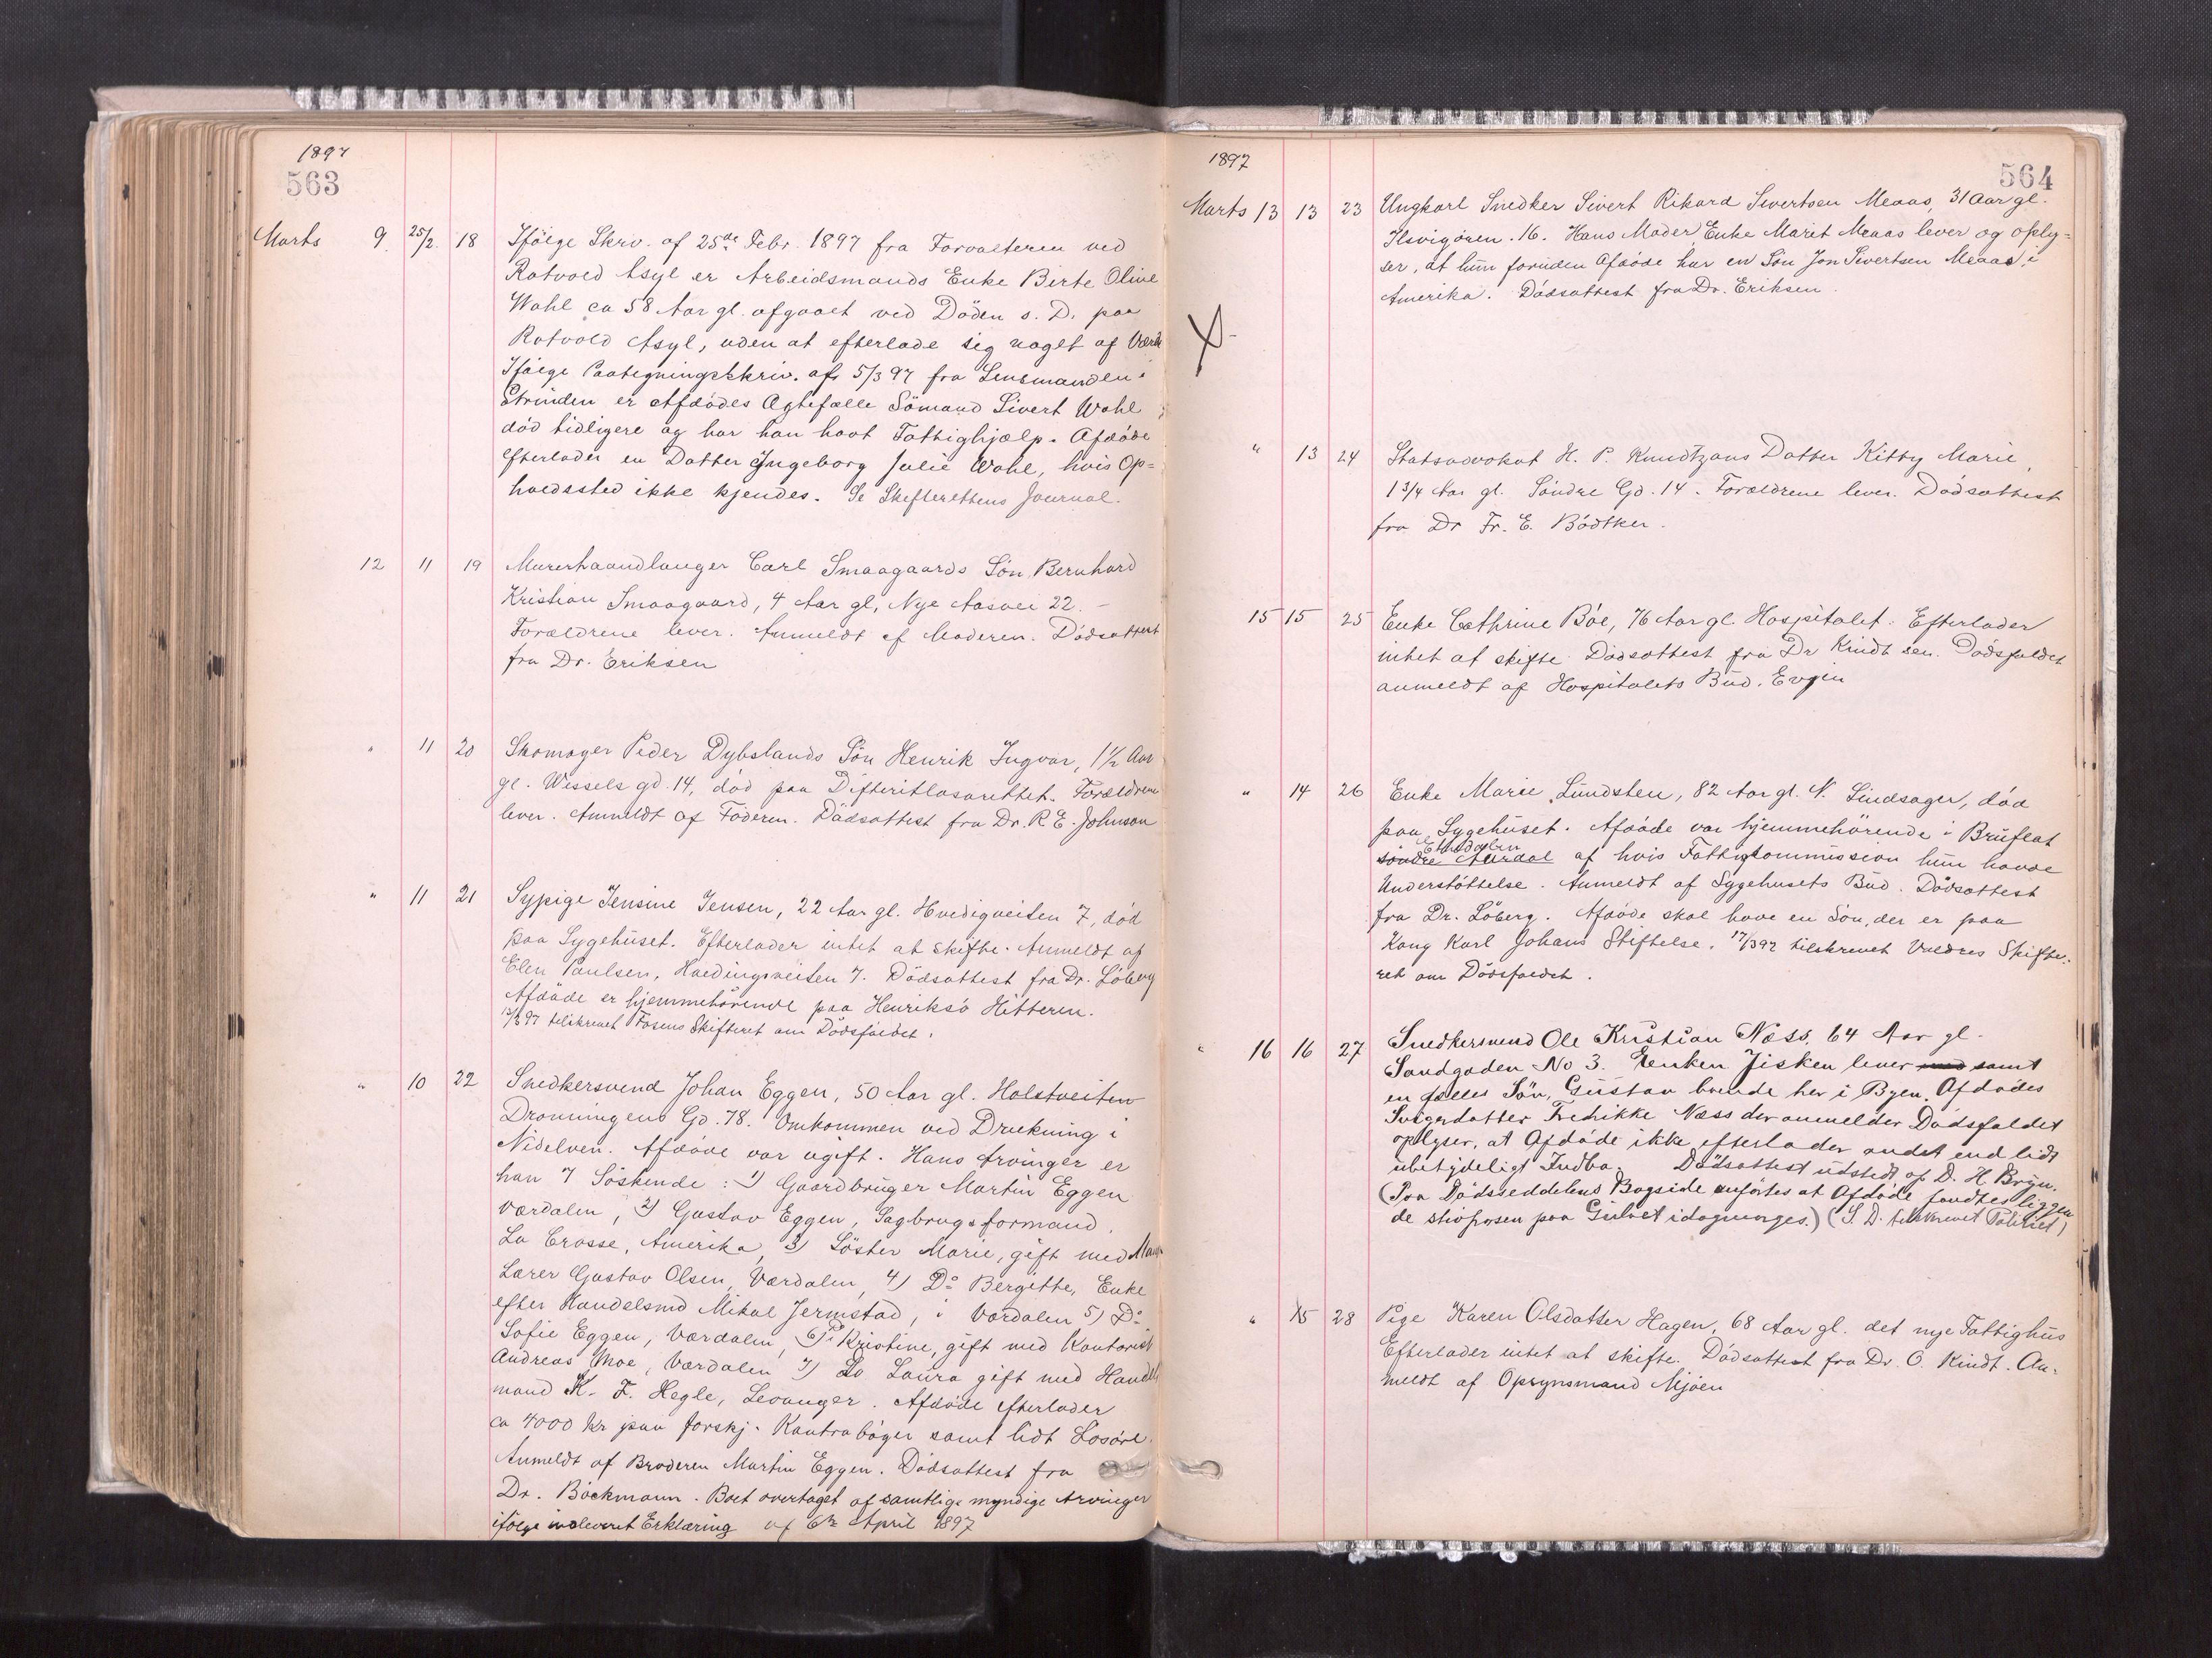 1897
563
Marts 9 25/2 18 Ifölge Skriv. af 25de Febr. 1897 fra Forvalteren ved
Rotvold Asyl er Arbeidsmands Enke Berte Oline
Wahl ca 58 Aar gl. afgaaet ved Döden s. D. paa
Rotvold Asyl, uden at efterlade sig noget af Værdi
Ifölge Paategningsskriv. af 5/3 97 fra Lensmanden i
Strinden er Afdödes Ægtefælle Sömand Sivert Wahl
död tidligere og har han havt Fattighjælp. Afdöde
efterlader en Datter Ingeborg Julie Wahl, hvis Op=
holdssted ikke kjendes. Se Skifterettens Journal.
12 11 19 Murerhaandlanger Carl Smaagaards Sön Bernhard
Kristian Smaagaard, 4 Aar gl, Nye Aasvei 22. –
Forældrene lever. Anmeldt af Moderen. Dödsattest
fra Dr. Eriksen
" 11 20 Skomager Peder Dybslands Sön Henrik Ingvar, 1½ Aar
gl. Wessels gd. 14, död paa Difteritlasarettet. Forældrene
lever. Anmeldt af Faderen. Dödsattest fra Dr. R. E. Johnson
" 11 21 Sypige Jensine Jensen, 22 Aar gl. Hvedigveiten 7, död
paa Sygehuset. Efterlader intet at skifte. Anmeldt af
Elen Paulsen, Hvedingsveiten 7. Dödsattest fra Dr. Löberg
Afdöde er hjemmehörende paa Henriksö Hitteren.
12/3 97 tilskrevet Fosens Skifteret om Dödsfaldet.
" 10 22 Snedkersvend Johan Eggen, 50 Aar gl. Holstveiten
Dronningens Gd. 78. Omkommen ved Drukning i
Nidelven. Afdöde var ugift. Hans Arvinger er
han 7 Söskende: 1) Gaardbruger Martin Eggen
Værdalen, 2) Gustav Eggen, Sagbrugsformand,
La Crosse, Amerika, 3) Söster Marie, gift med
Lærer Gustav Olsen, Værdalen, 4) Do Bergitte, Enke
efter Handelsmd Mikal Jermstad, i Værdalen 5) Do
Sofie Eggen, Værdalen, 6) Kristine, gift med Kontorist
Andreas Moe, Værdalen 7) Do Laura gift med Handels
mand K. F. Hegle, Levanger. Afdöde efterlader
ca 4000 kr paa forskj. Kontrabøger samt lidt Losöre.
Anmeldt af Broderen Martin Eggen. Dödsattest fra
Dr. Böckmann. Boet overtaget af samtlige myndige Arvinger
ifölge indleveret Erklæring af 6te April 1897
1897
564
Marts 13 13 23 Ungkarl Snedker Sivert Rikard Sivertsen Meaas, 31 Aar gl.
Ilsvigören. 16. Hans Moder, Enke Marit Meaas lever og oply=
ser, at hun foruden Afdöde har en Sön Jon Sivertsen Meaas, i
Amerika. Dödsattest fra Dr. Eriksen.
" 13 24 Statsadvokat H. P. Knudtzons Datter Kitty Marie,
1 3/4 Aar gl. Söndre Gd. 14. Forældrene lever. Dödsattest
fra Dr Fr. E. Bödtker.
15 15 25 Enke Cathrine Böe, 76 Aar gl. Hospitalet. Efterlader
intet at skifte. Dödsattest fra Dr Kindt sen. Dödsfaldet
anmeldt af Hospitalets Bud. Evjen
" 14 26 Enke Marie Lundsten, 82 Aar gl. N. Lindsager, död
paa Sygehuset. Afdöde var hjemmehörende i Bruflat
Etnedalen
söndre Aurdal af hvis Fattigkommission hun havde
Understöttelse. Anmeldt af Sygehusets Bud. Dödsattest
fra Dr. Löberg. Afdöde skal have en Sön, der er paa
Kong Karl Johans Stiftelse. 17/3 97 tilskrevet Valdres Skifte-
ret om Dödsfaldet.
" 16 16 27 Snedkersvend Ole Kristian Næss, 64 Aar gl.
Sandgaden No 3. Enken Jisken lever med samt
en fælles Sön, Gustav boende her i Byen. Afdödes
Svigerdatter Fredrikke Næss der anmelder Dödsfaldet
oplyser, at Afdöde ikke efterlader andet end lidt
ubetydeligt Indbo. Dödsattest udstedt af D. H. Bryn.
(Paa Dödsseddelens Bagside anförtes at Afdöde fandtes liggen
de stivfrosen paa Gulvet idagmorges.) (S. D. tilskrevet Politiet)
" 15 28 Pige Karen Olsdatter Hagen, 68 Aar gl. det nye Fattighus
Efterlader intet at skifte. Dödsattest fra Dr. O. Kindt. An-
meldt af Opsynsmand Mjöen